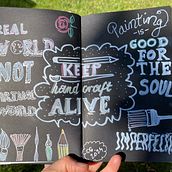 REAL
WORLD
NOT
WORLD
KEEP
hand craft
ALIVE
Painting
IS
GOOD
FOR
THE
SOUL
IMPERFECT